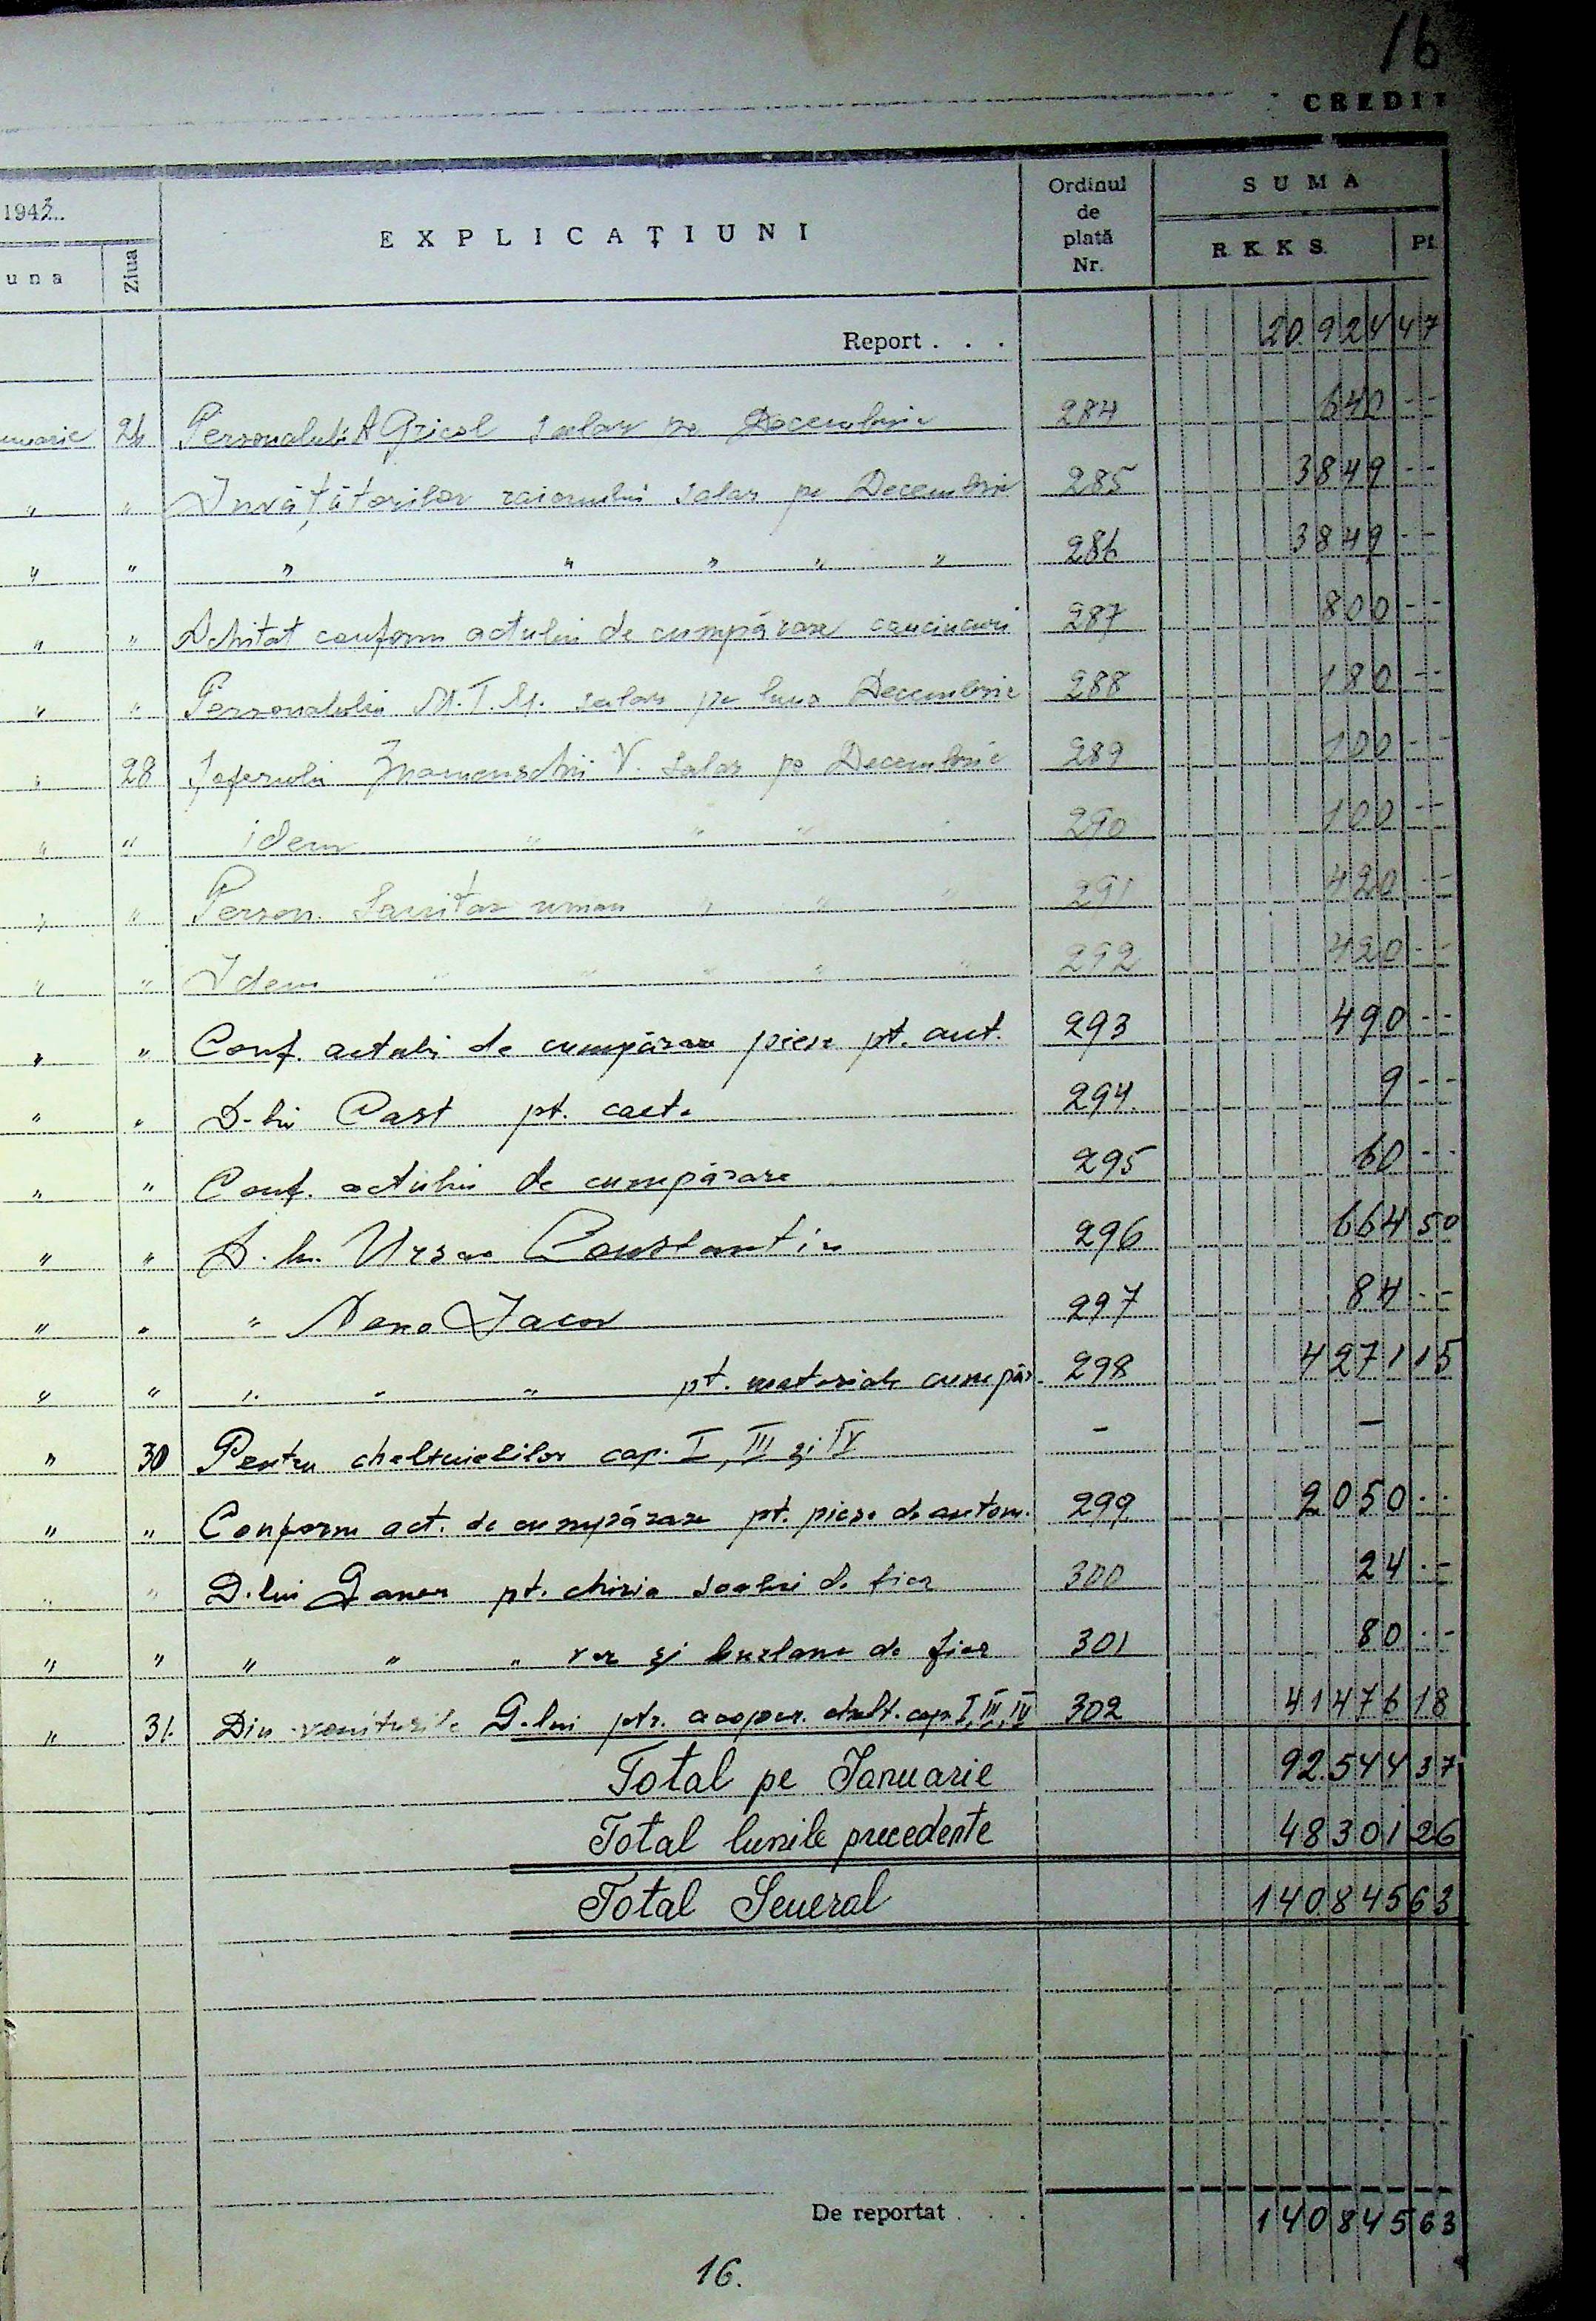 16
CREDIT
1943..
EXPLICAŢIUNI
Ordinul de plată Nr.
SUMA
una
Ziua
R. K. K. S.
Pf.
Report . . . 20.924 47
uarie 24 Personalului Agricol salar pe Decembrie 284 640 --
" " Învăţătorilor raionului salar pe Decembrie 285 3849 --
" " " " " " " 286 3849 --
" " Achitat conform actului de cumpărare cauciucuri 287 800 --
" " Personalului M.T.M. salar pe luna Decembrie 288 180 --
" 28 Şoferului V. salar pe Decembrie 289 100 --
" " idem " " " " 290 100 --
" " Person. Sanitar uman " " " 291 420 --
" " Idem " " " " " 292 420 --
" " Conf. actului de cumpărare piese pt. aut. 293 490 --
" " D-lui Cast pt. 294. 9 --
" " Conf. actului de cumpărare 295 60 --
" " D. lui Ursan Constantin 296 664 50
" " " Iacov 297 84 --
" " " " " pt. materiale cumpăr. 298 4271 15
" 30 Pentru cheltuielilor cap. I, III şi IV - —
" " Conform act. de cumpărare pt. piese de autom. 299 2050 --
" " D.lui Ganer pt. chiria de fier 300 24 --
" " " " " şi burlane de fier 301 80 --
" 31. Din veniturile G-lui ptr. acoper. chelt. cap I, III, IV 302 41476 18
Total pe Ianuarie 92.544 37
Total lunile precedente 48301 26
Total General 140.845 63
De reportat . . . 140845 63
16.